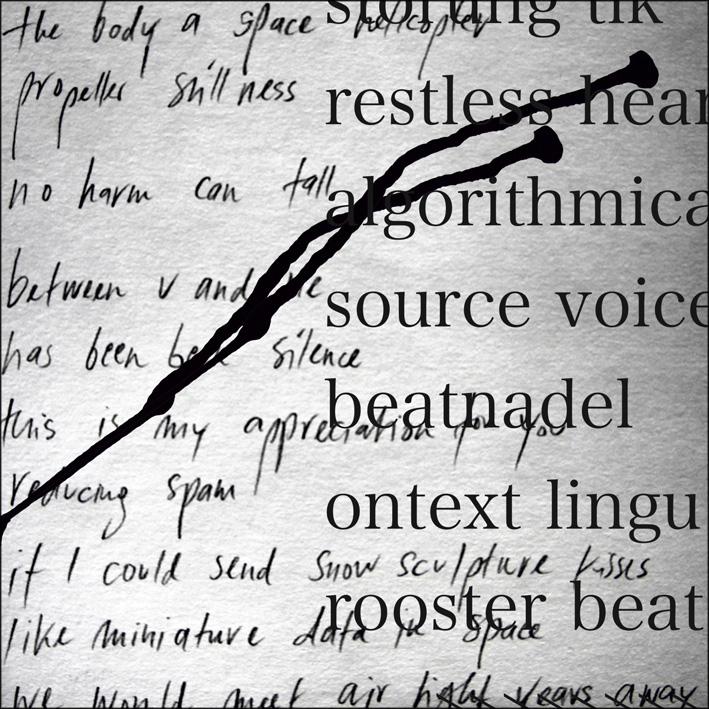 the body a space helicopter
propeller stillness
no harm can fall
between v and
has been silence
this is my appreciation for you
reducing spam
if I could send snow sculpture kisses
like miniature data in space
we would meet air light years away
storling tik
restless hear
algorithmica
source voice
beatnadel
ontext lingu
rooster beat